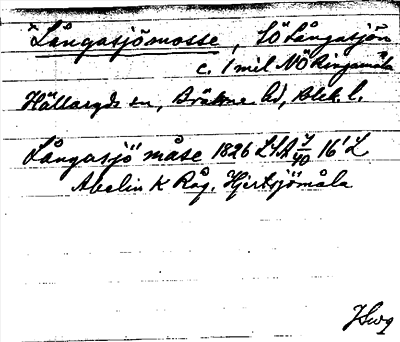 Långasjömosse, SÖ Långasjön
c. 1 mil NÖ Ringamåla
Hällaryds sn, Bräkne hd, Blek. l.
Långasjö måse 1826 LSA 7/40 16' L
Abelin K Råg. Hjertsjömåla